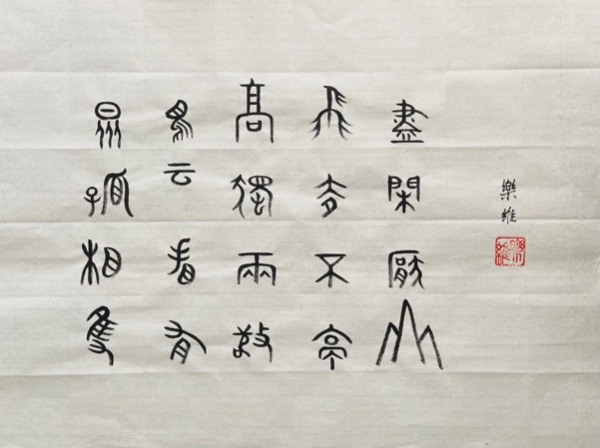 眾鳥高飛盡
孤云獨去閑
相看兩不厭
隻有敬亭山
樂維